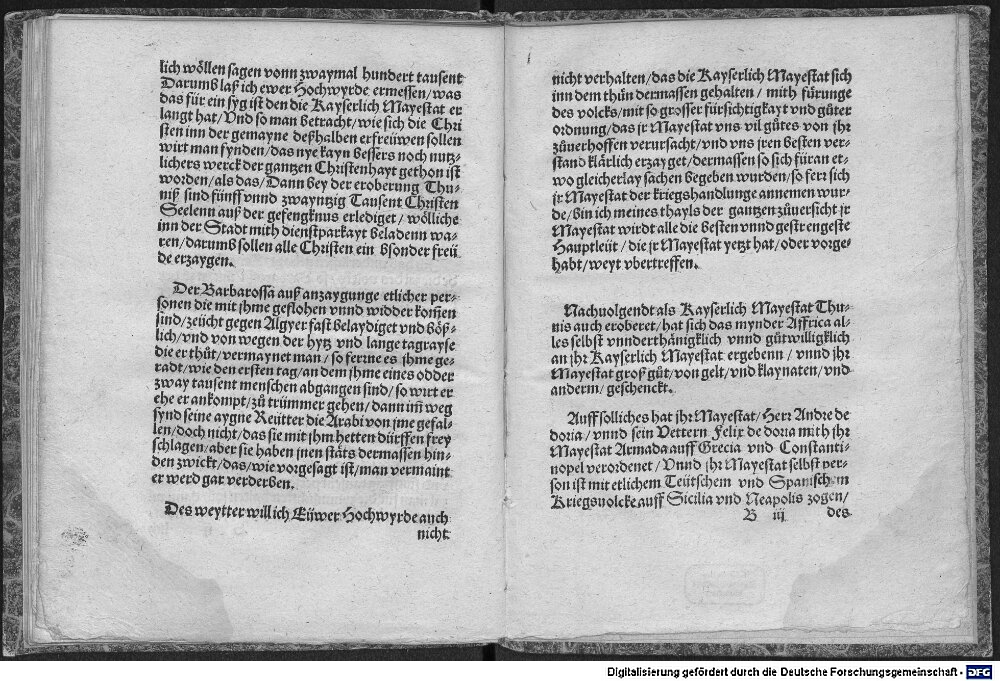 lich wöllen sagen vonn zwaymal hundert tausent
Darumb laß ich ewer Hochwyrde ermessen / was
das für ein syg ist den die Kayserlich Mayestat er
langt hat / Vnd so man betracht / wie sich die Chri
sten inn der gemayne deßhalben erfreüwen sollen
wirt man fynden / das nye kayn bessers noch nutz-
lichers werck der gantzen Christenhayt gethon ist
worden / als das / Dann bey der eroberung Thu-
niß sind fünff vnnd zwayntzig Tausent Christen
Seelenn auß der gefengknus erlediget / wölliche
inn der Stadt mith dienstparkayt beladenn wa-
ren / darumb sollen alle Christen ein bsonder freü
de erzaygen.
Der Barbarossa auß anzaygunge etlicher per-
sonen die mit jhme geflohen vnnd widder kom̃en
sind / zeücht gegen Algyer fast belaydiget vnd böß-
lich / vnd von wegen der hytz vnd lange tagrayse
die er thůt / vermaynet man / so ferne es jhme ge-
radt / wie den ersten tag / an dem jhme eines odder
zway tausent menschen abgangen sind / so wirt er
ehe er ankompt / zů trümmer gehen / dann im̃ weg
synd seine aygne Reütter die Arabi von jme gefal-
len / doch nicht / das sie mit jhm hetten dürffen frey
schlagen / aber sie haben jnen stäts dermassen hin-
den zwickt / das / wie vorgesagt ist / man vermaint
er werd gar verderben.
Des weytter will ich Eüwer Hochwyrde auch
nicht
nicht verhalten / das die Kayserlich Mayestat sich
inn dem thůn dermassen gehalten / mith fürunge
des volcks / mit so grosser fürsichtigkayt vnd gůter
ordnung / das jr Mayestat vns vil gůtes von jhr
zůuerhoffen verursacht / vnd vns jren besten ver-
stand klärlich erzayget / dermassen so sich füran et-
wo gleicherlay sachen begeben wurden / so fern sich
jr Mayestat der kriegshandlunge annemen wur-
de / bin ich meines thayls der gantzen zůuersicht jr
Mayestat wirdt alle die besten vnnd gestrengeste
Hauptleüt / die jr Mayestat yetzt hat / oder vorge-
habt / weyt vbertreffen.
Nachuolgendt als Kayserlich Mayestat Thu-
nis auch eroberet / hat sich das mynder Affrica al-
les selbst vnnderthänigklich vnnd gůtwilligklich
an jhr Kayserlich Mayestat ergebenn / vnnd jhr
Mayestat groß gůt / von gelt / vnd klaynaten / vnd
andern / geschenckt.
Auff solliches hat jhr Mayestat / Herr Andre de
doria / vnnd sein Vettern Felix de doria mith jhr
Mayestat Armada auff Grecia vnd Constanti-
nopel verordenet / Vnnd jhr Mayestat selbst per-
son ist mit etlichem Teütschem vnd Spanischem
Kriegsuolcke auff Sicilia vnd Neapolis zogen /
B iij des
Digitalisierung gefördert durch die Deutsche Forschungsgemeinschaft - DFG